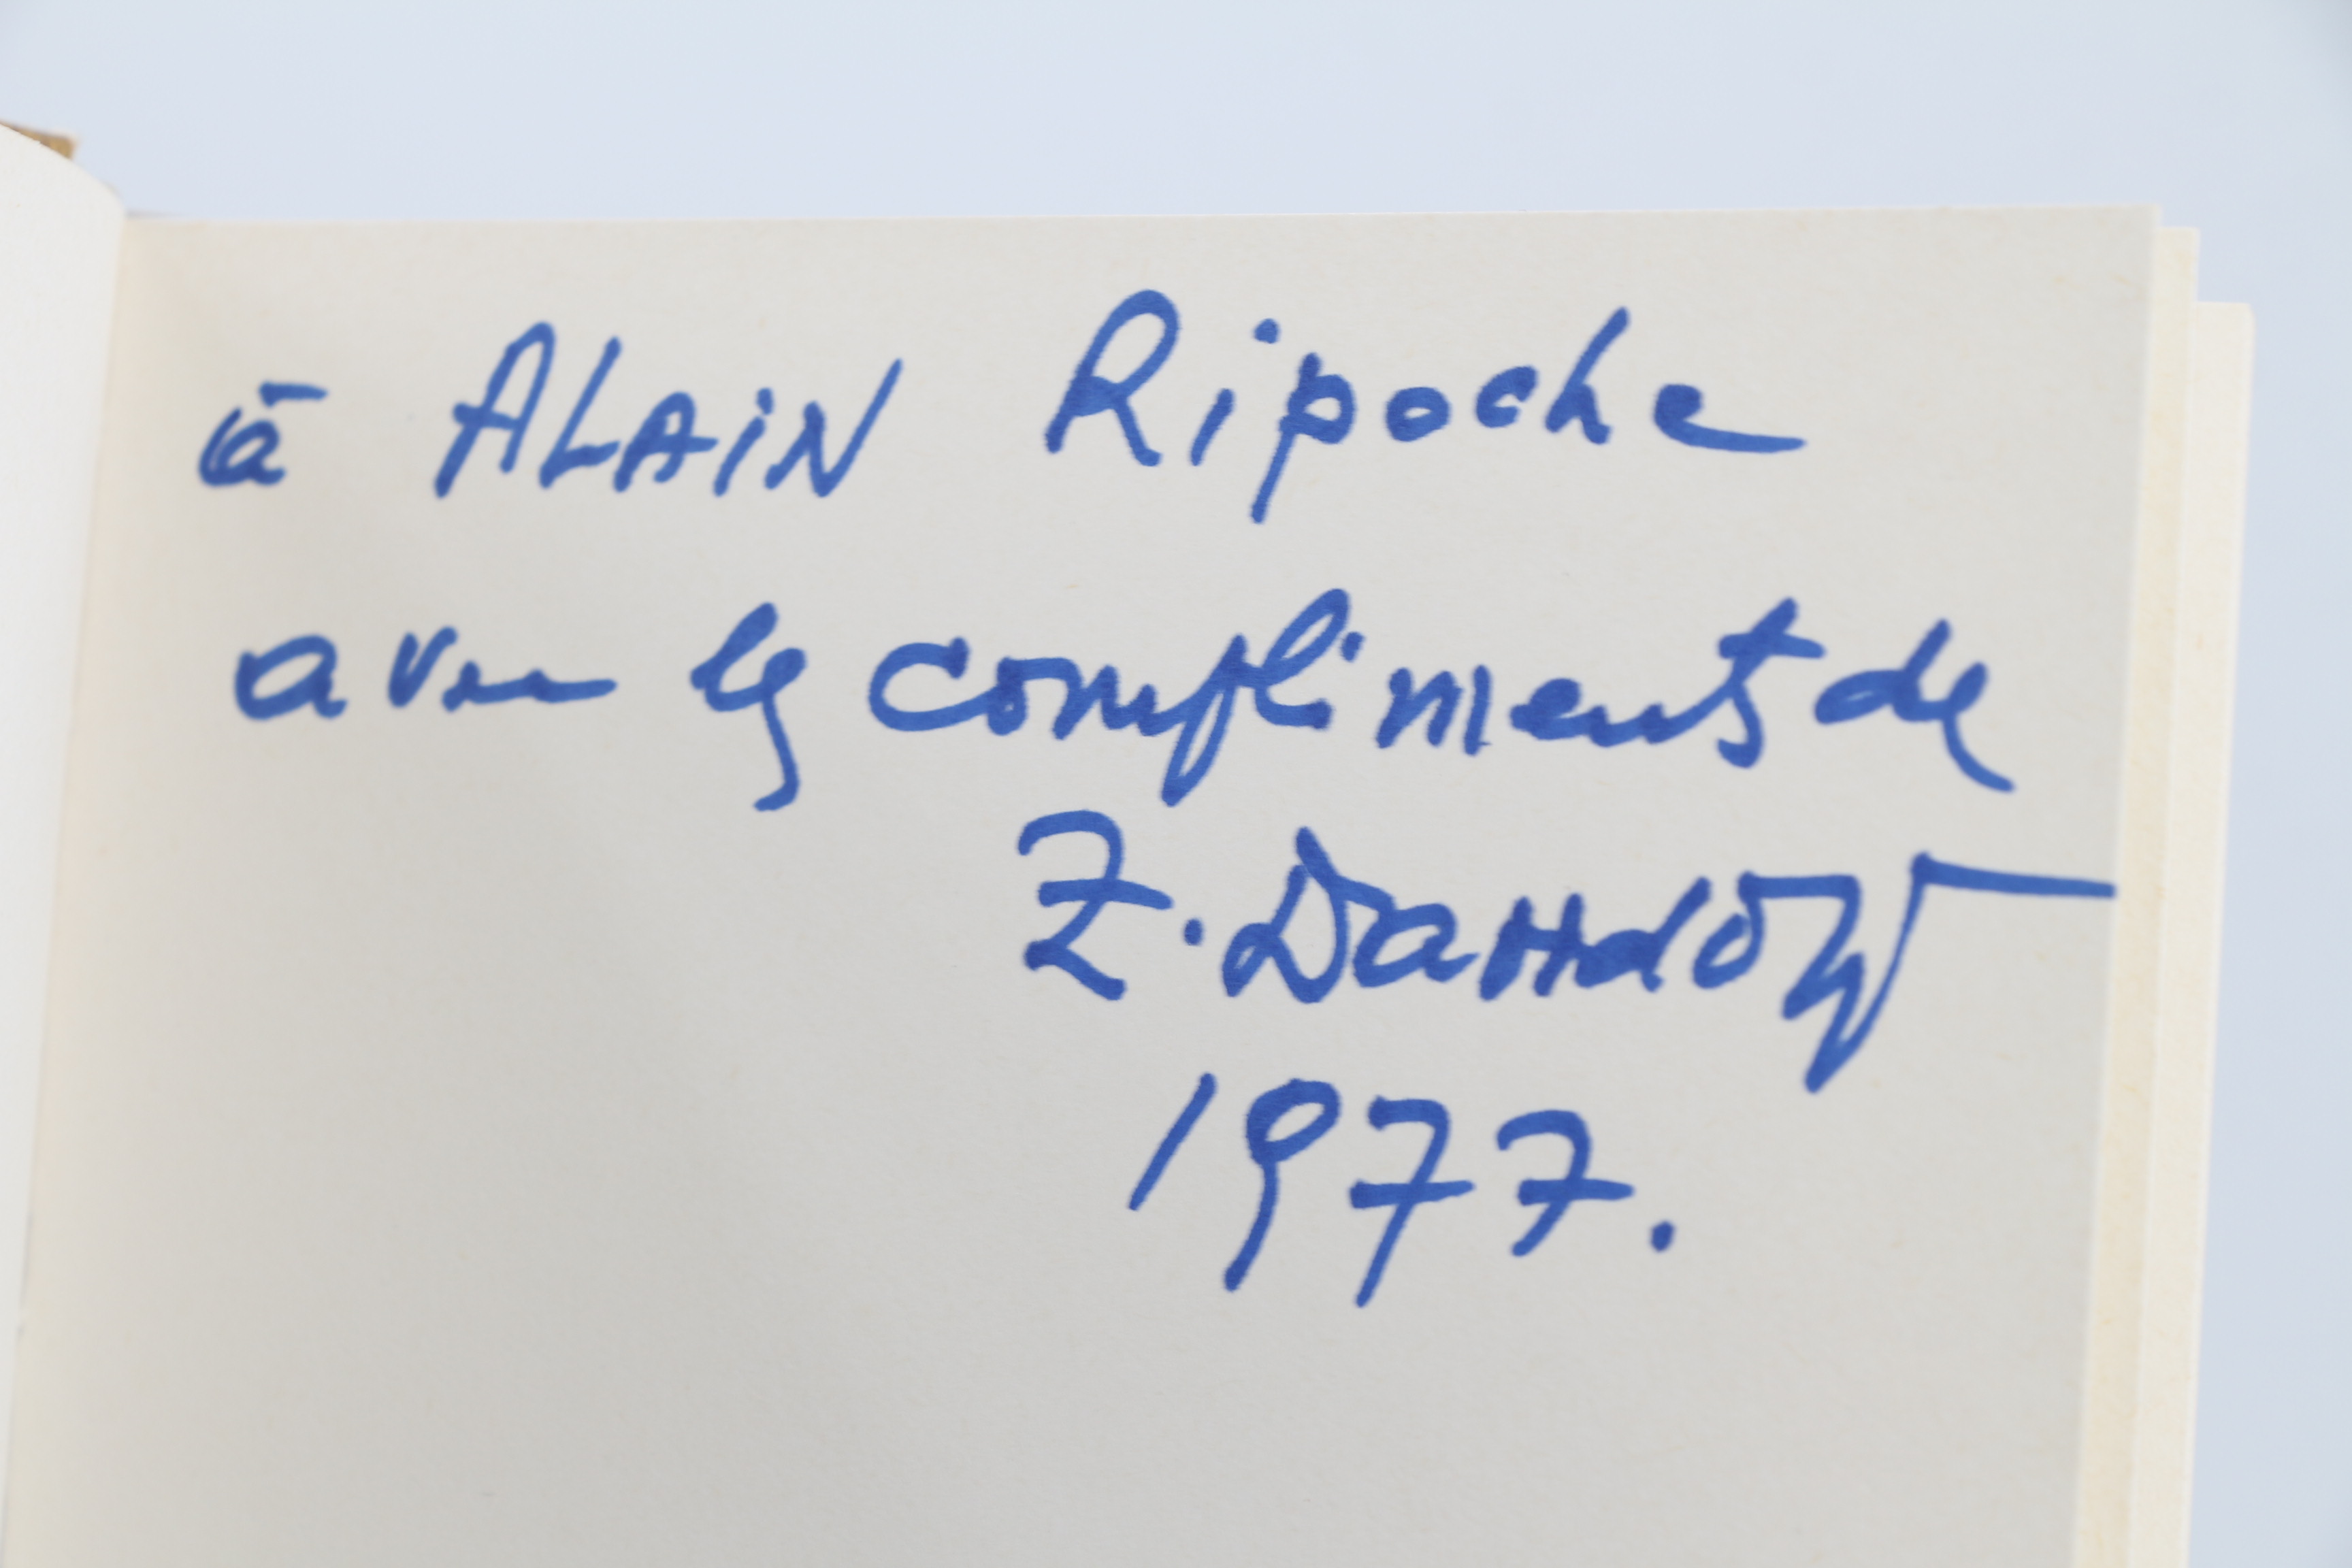 à ALAIN Ripoche
avec les compliments de
Z. Davidoff
1977.